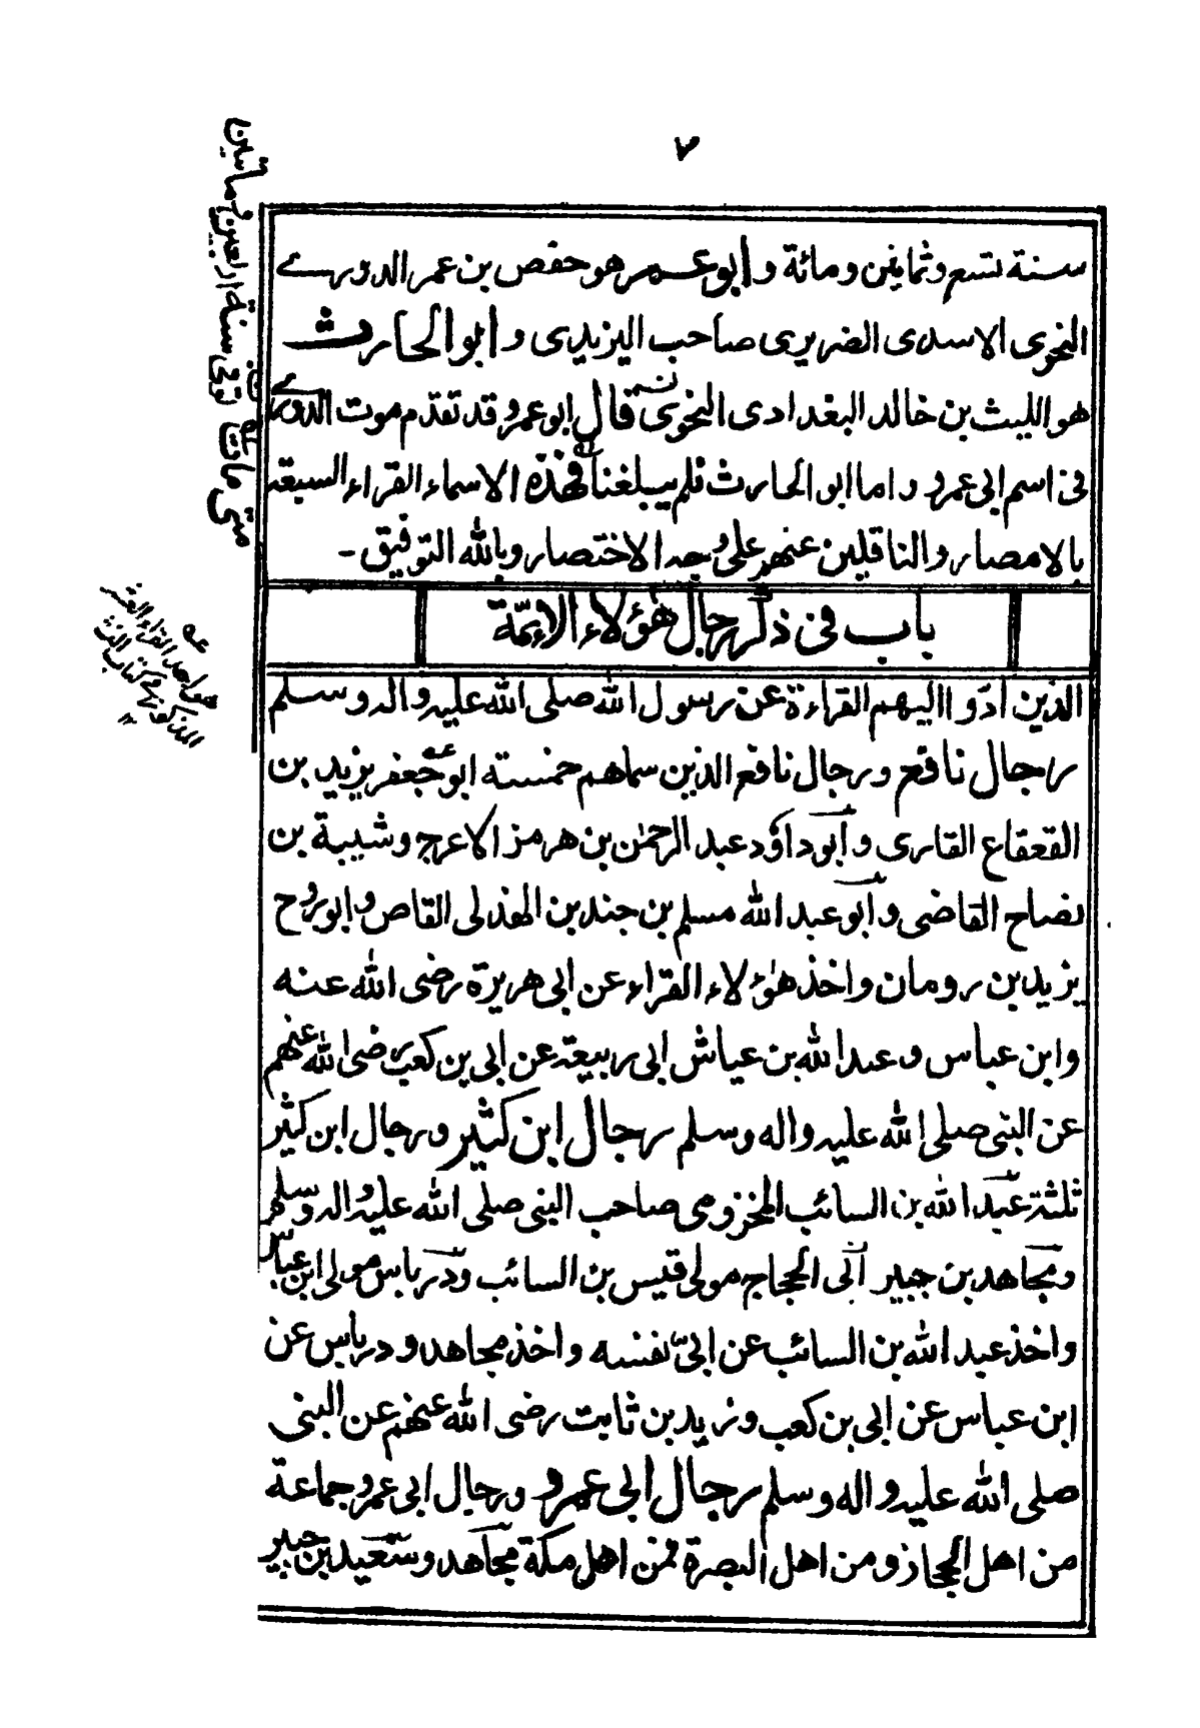 ٧
سنة تسع وثمانين ومائة وابو عمر هو حفص بن عمر الدورے
النحوى الاسدى الضريرى صاحب اليزيدى وابو الحارث
هو الليث بن خالد البغدادى النحوى قال ابو عمرو قد تقدم موت الدورے
فى اسم ابى عمرو واما ابو الحارث فلم يبلغنا فهذه الاسماء القراء السبعة
بالامصار والناقلين عنهم على وجه الاختصار وبالله التوفيق -
باب فى ذكر رجال هؤلاء الائمة
الذين ادّوا اليهم القراءة عن رسول الله صلى الله عليه واله وسلم
رجال نافع ورجال نافع الذين سماهم خمسته ابو جعفر يزيد بن
القعقاع القارى وابو داؤد عبد الرحمٰن بن هرمز الاعرج وشيبة بن
نصاح القاضى وابو عبد الله مسلم بن جندبن الهذلى القاص وابو روح
يزيد بن رومان واخذ هٰؤلاء القراء عن ابى هريرة رضى الله عنه
وابن عباس وعبد الله بن عياش ابى ربيعة عن ابى بن كعب رضى الله عنهم
عن النبى صلى الله عليه واله وسلم رجال ابن كثير ورجال ابن كثير
ثلثة عبد الله بن السائب المخزومى صاحب النبى صلى الله عليه واله وسلم
ومجاهد بن جبير ابى الحجاج مولى قيس بن السائب ودرباس مولى ابن عباس
واخذ عبد الله بن السائب عن ابىّ نفسه واخذ مجاهد ودرباس عن
ابن عباس عن ابى بن كعب وزيد بن ثابت رضى الله عنهم عن النبى
صلى الله عليه واله وسلم رجال ابى عمرو ورجال ابى عمرو جماعة
من اهل الحجاز ومن اهل البصرة فمن اهل مكة مجاهد وسعيد بن جبير
متى مات توفى سنة اربعين ومائتين
عه
هو احد القراء العشر
المذكور فى كتاب النشر
١٢